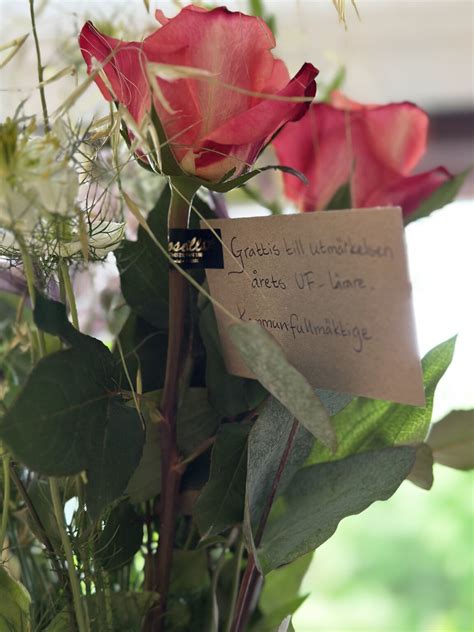 Grattis till utmärkelsen
årets UF-lärare.
Kommunfullmäktige